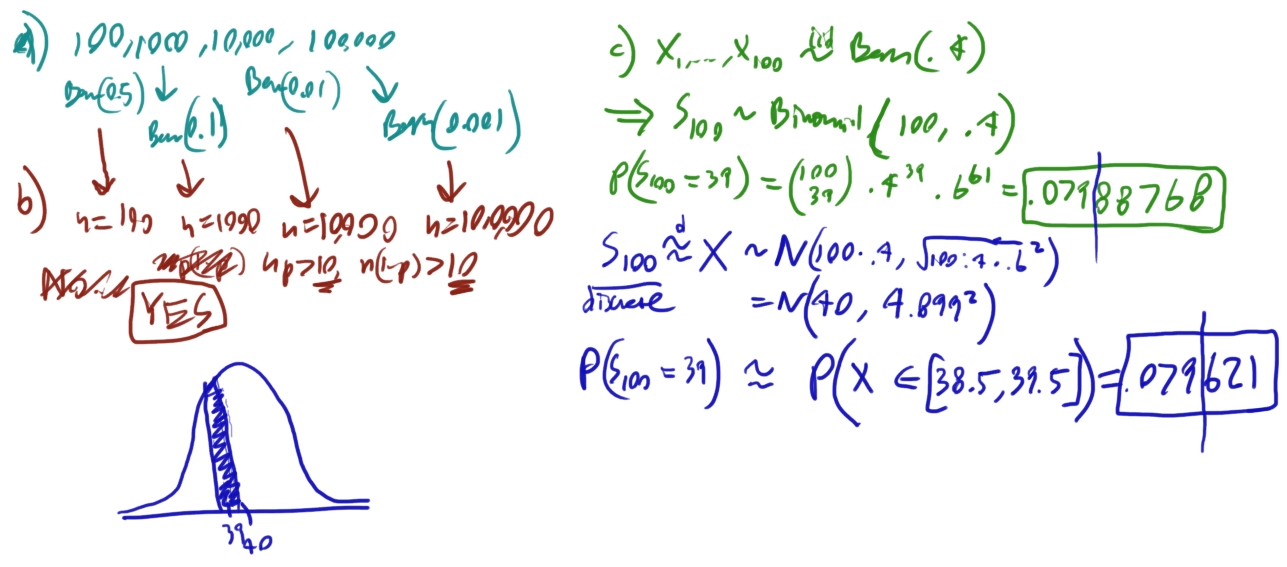 a) 100, 1000, 10,000, 100,000
Bern(0.5) Bern(0.01)
Bern(0.1) Bern(0.001)
b) n=100 n=1000 n=10,000 n=10,0000
np>10, n(1-p)>10
YES
39 40
c) X1,...,X100 iid ~ Bern(.4)
⇒ S100 ~ Binomial(100, .4)
P(S100 = 39) = (100 39) .4^39 .6^61 = .07988768
S100 ≈^d X ~ N(100·.4, √100·.4·.6²)
discrete = N(40, 4.899²)
P(S100 = 39) ≈ P(X ∈ [38.5, 39.5]) = .079621